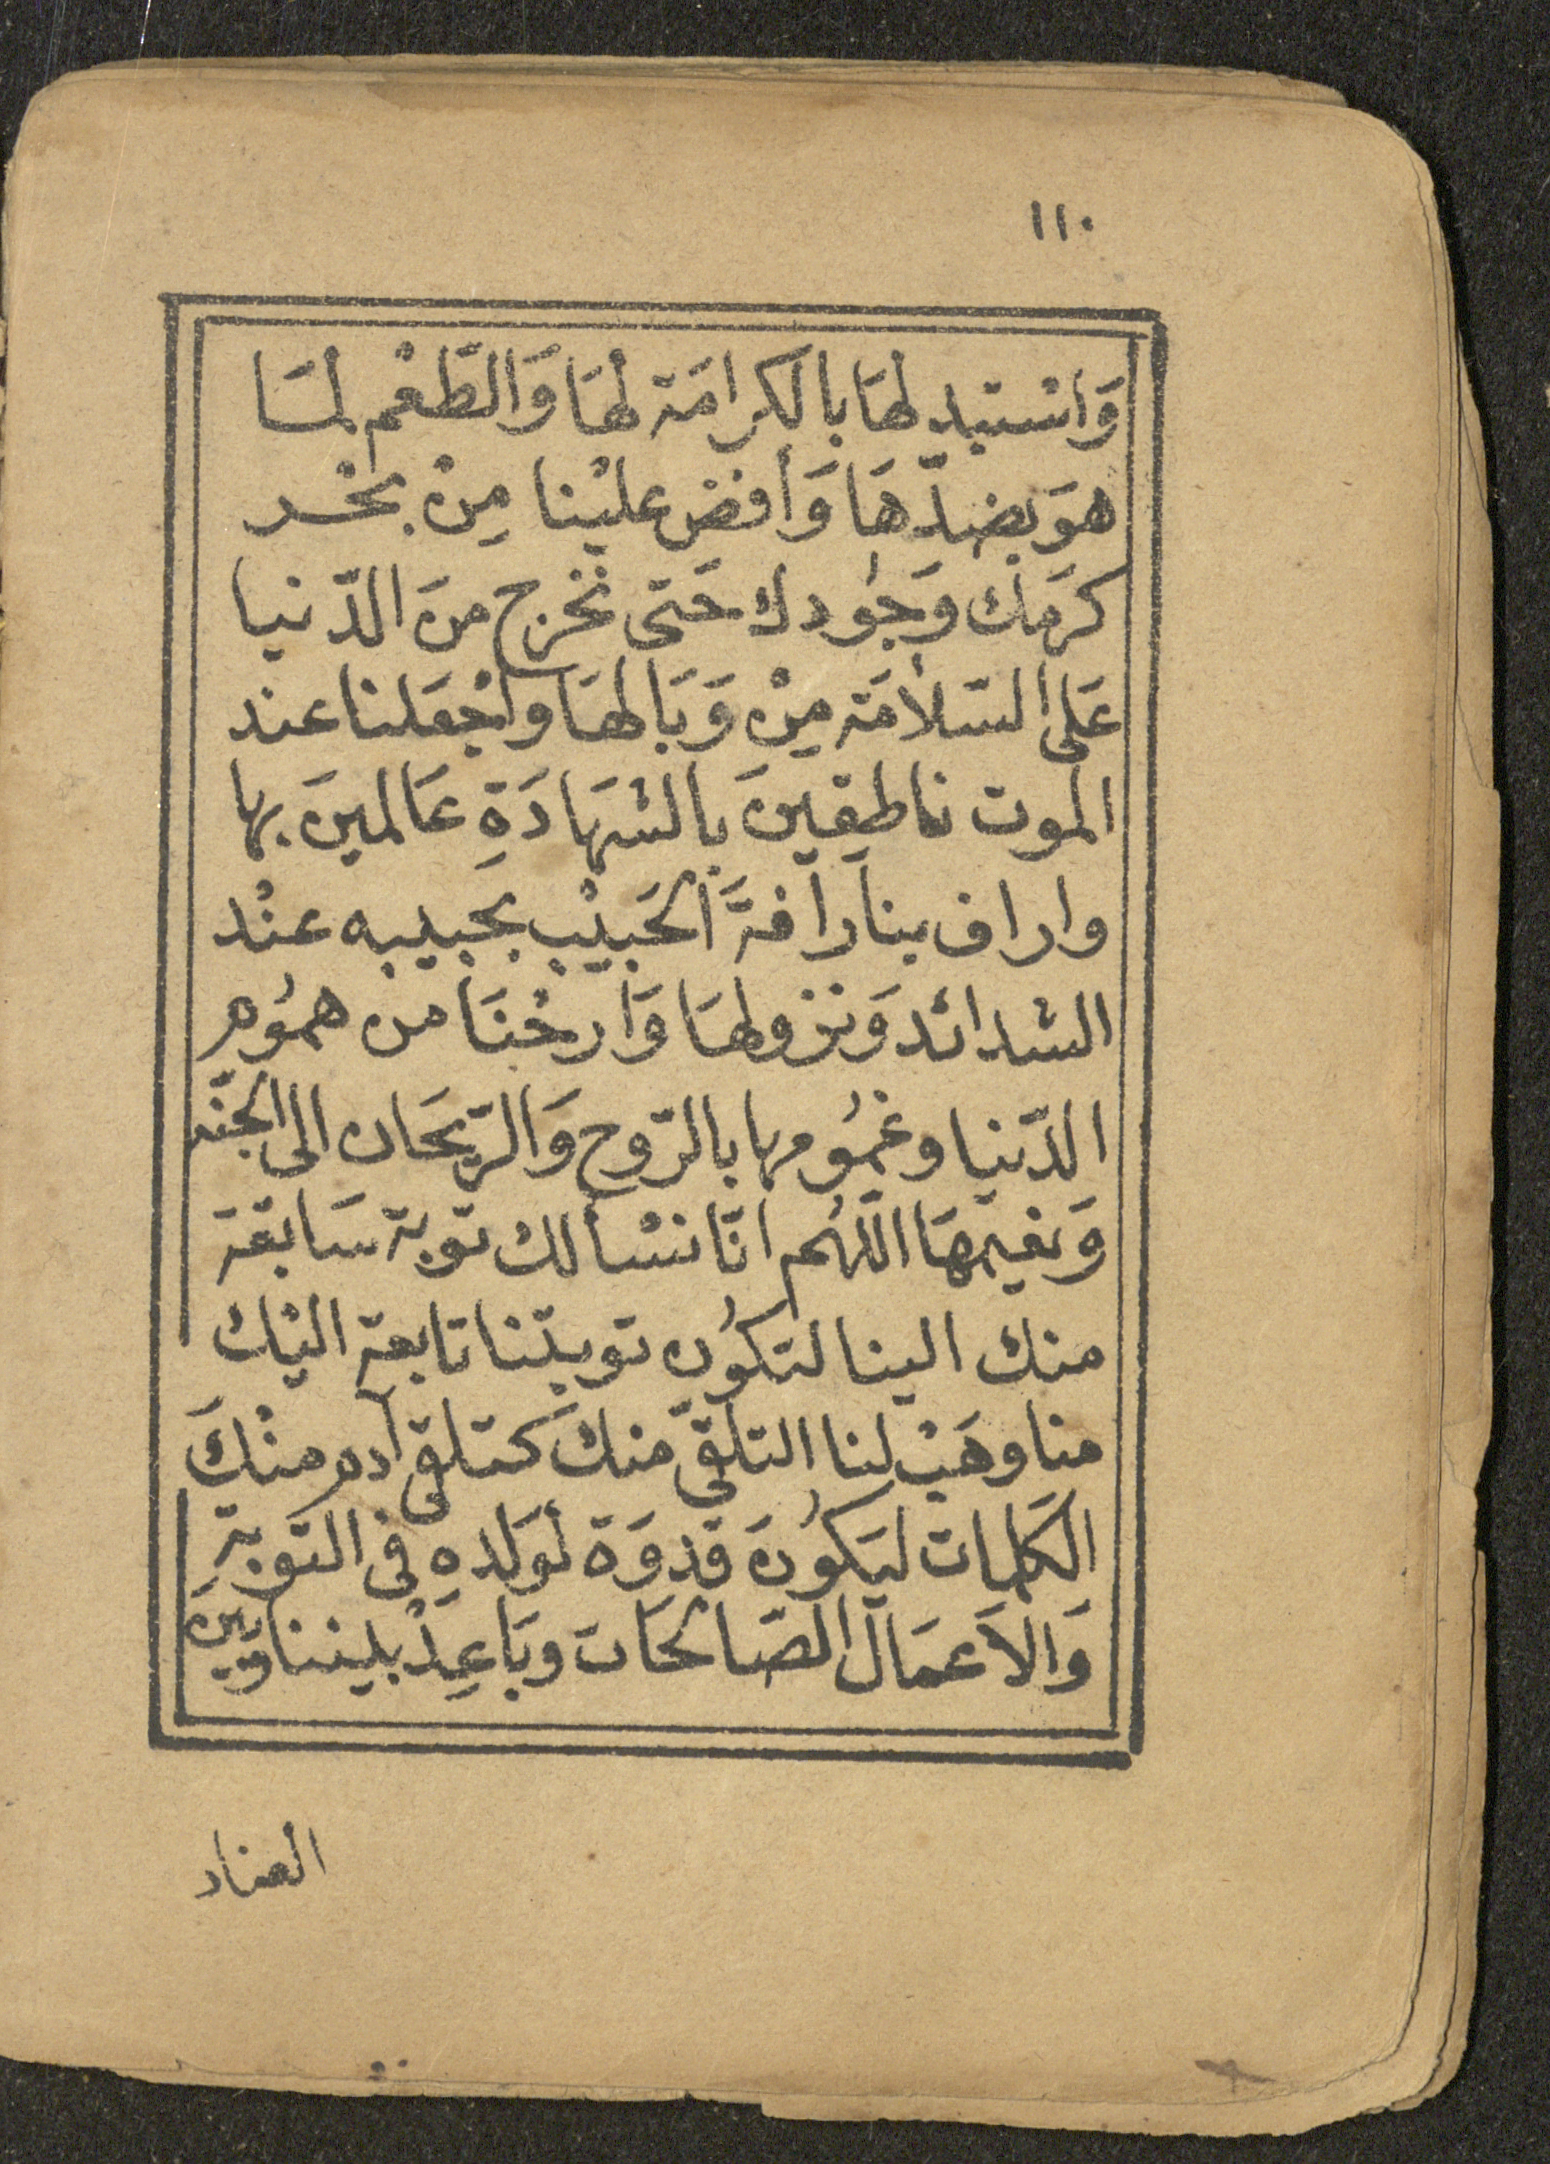 ١١٠
وَاسْتبدِلهَا بِالكرامَة لهَا وَالطّعْم لمَا
هوَ بضدّهَا وَأفض عليْنا مِنْ بحْر
كرَمك وَجُودك حَتى نخرج منَ الدّنيا
عَلى السّلامَة مِنْ وَبَالهَا واجْعَلنا عند
الموت ناطقينَ بالشهَادَةِ عَالمينَ بها
واراف بنا رأفةَ الحَبيْب بحبيبه عنْد
الشدائد وَنزولهَا وَارحْنَا من همُوم
الدّنيا وغمُومها بالرّوح وَالرّيحَان الى الجنّة
وَنعيمهَا اللّهُم انّا نسْألك توبة سَابقة
منك الينا لتكوُن توبتنا تابعة اليْك
منا وهَبْ لنا التلقّى منكَ كتلقى آدم منْكَ
الكَلمات ليَكوُنَ قدْوَة لوَلدهِ فى التَوبةِ
وَالاَعمَال الصّالحَات وبَاعِدْ بيننا وَبينَ
العناد